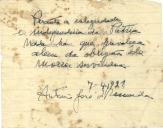 Perante a integridade
e independencia da Patria
nada ha que prevaleça
alem da obrigação de
morrer servindo-a
7-4-921
Antonio José d'Almeida